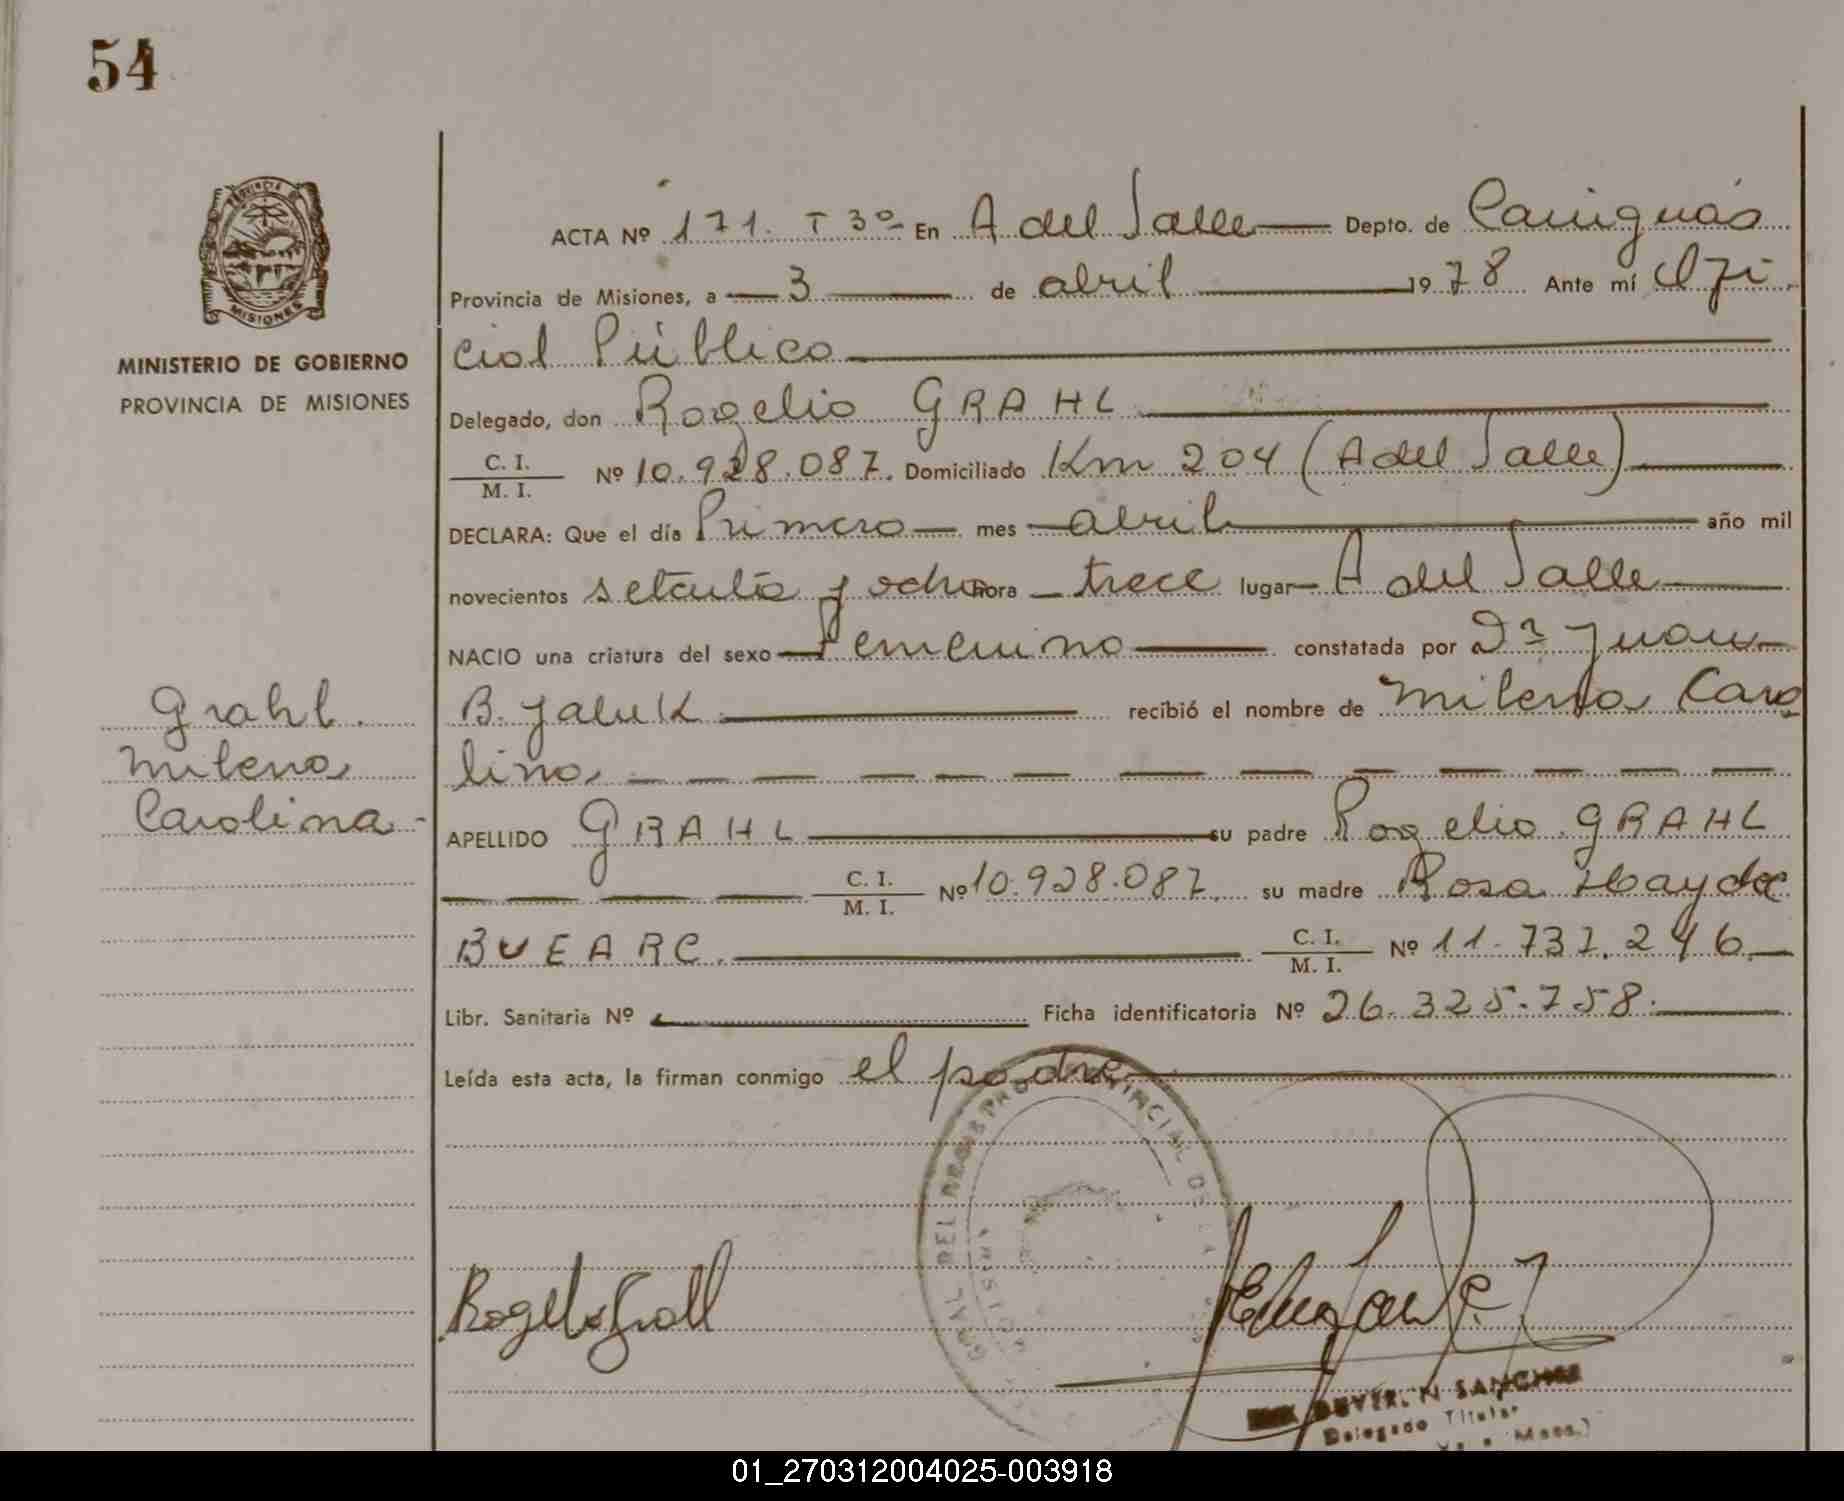 54
PROVINCIA DE
MISIONES
MINISTERIO DE GOBIERNO
PROVINCIA DE MISIONES
ACTA Nº 171. T 3º En A del Valle Depto. de Cainguás
Provincia de Misiones, a 3 de abril 1978 Ante mí Ofi
cial Público
Delegado, don Rogelio GRAHL
C. I.
M. I. Nº 10.928.087. Domiciliado Km 204 (A del Valle)
DECLARA: Que el día Primero mes abril año mil
novecientos setenta y ocho hora trece lugar A del Valle
NACIO una criatura del sexo Femenino constatada por Dr Juan
B. Jaluk recibió el nombre de Milena Caro
lina
APELLIDO GRAHL su padre Rogelio GRAHL
C. I.
M. I. Nº 10.928.087 su madre Rosa Haydee
BUEARC. C. I.
M. I. Nº 11.737.246
Libr. Sanitaria Nº Ficha identificatoria Nº 26.325.758.
Leída esta acta, la firman conmigo el padre
Grahl.
Milena
Carolina.-
DEL REGISTRO PROVINCIAL DE LA
Rogelio Grahl
SANCHEZ
Delegado Titular
01_270312004025-003918